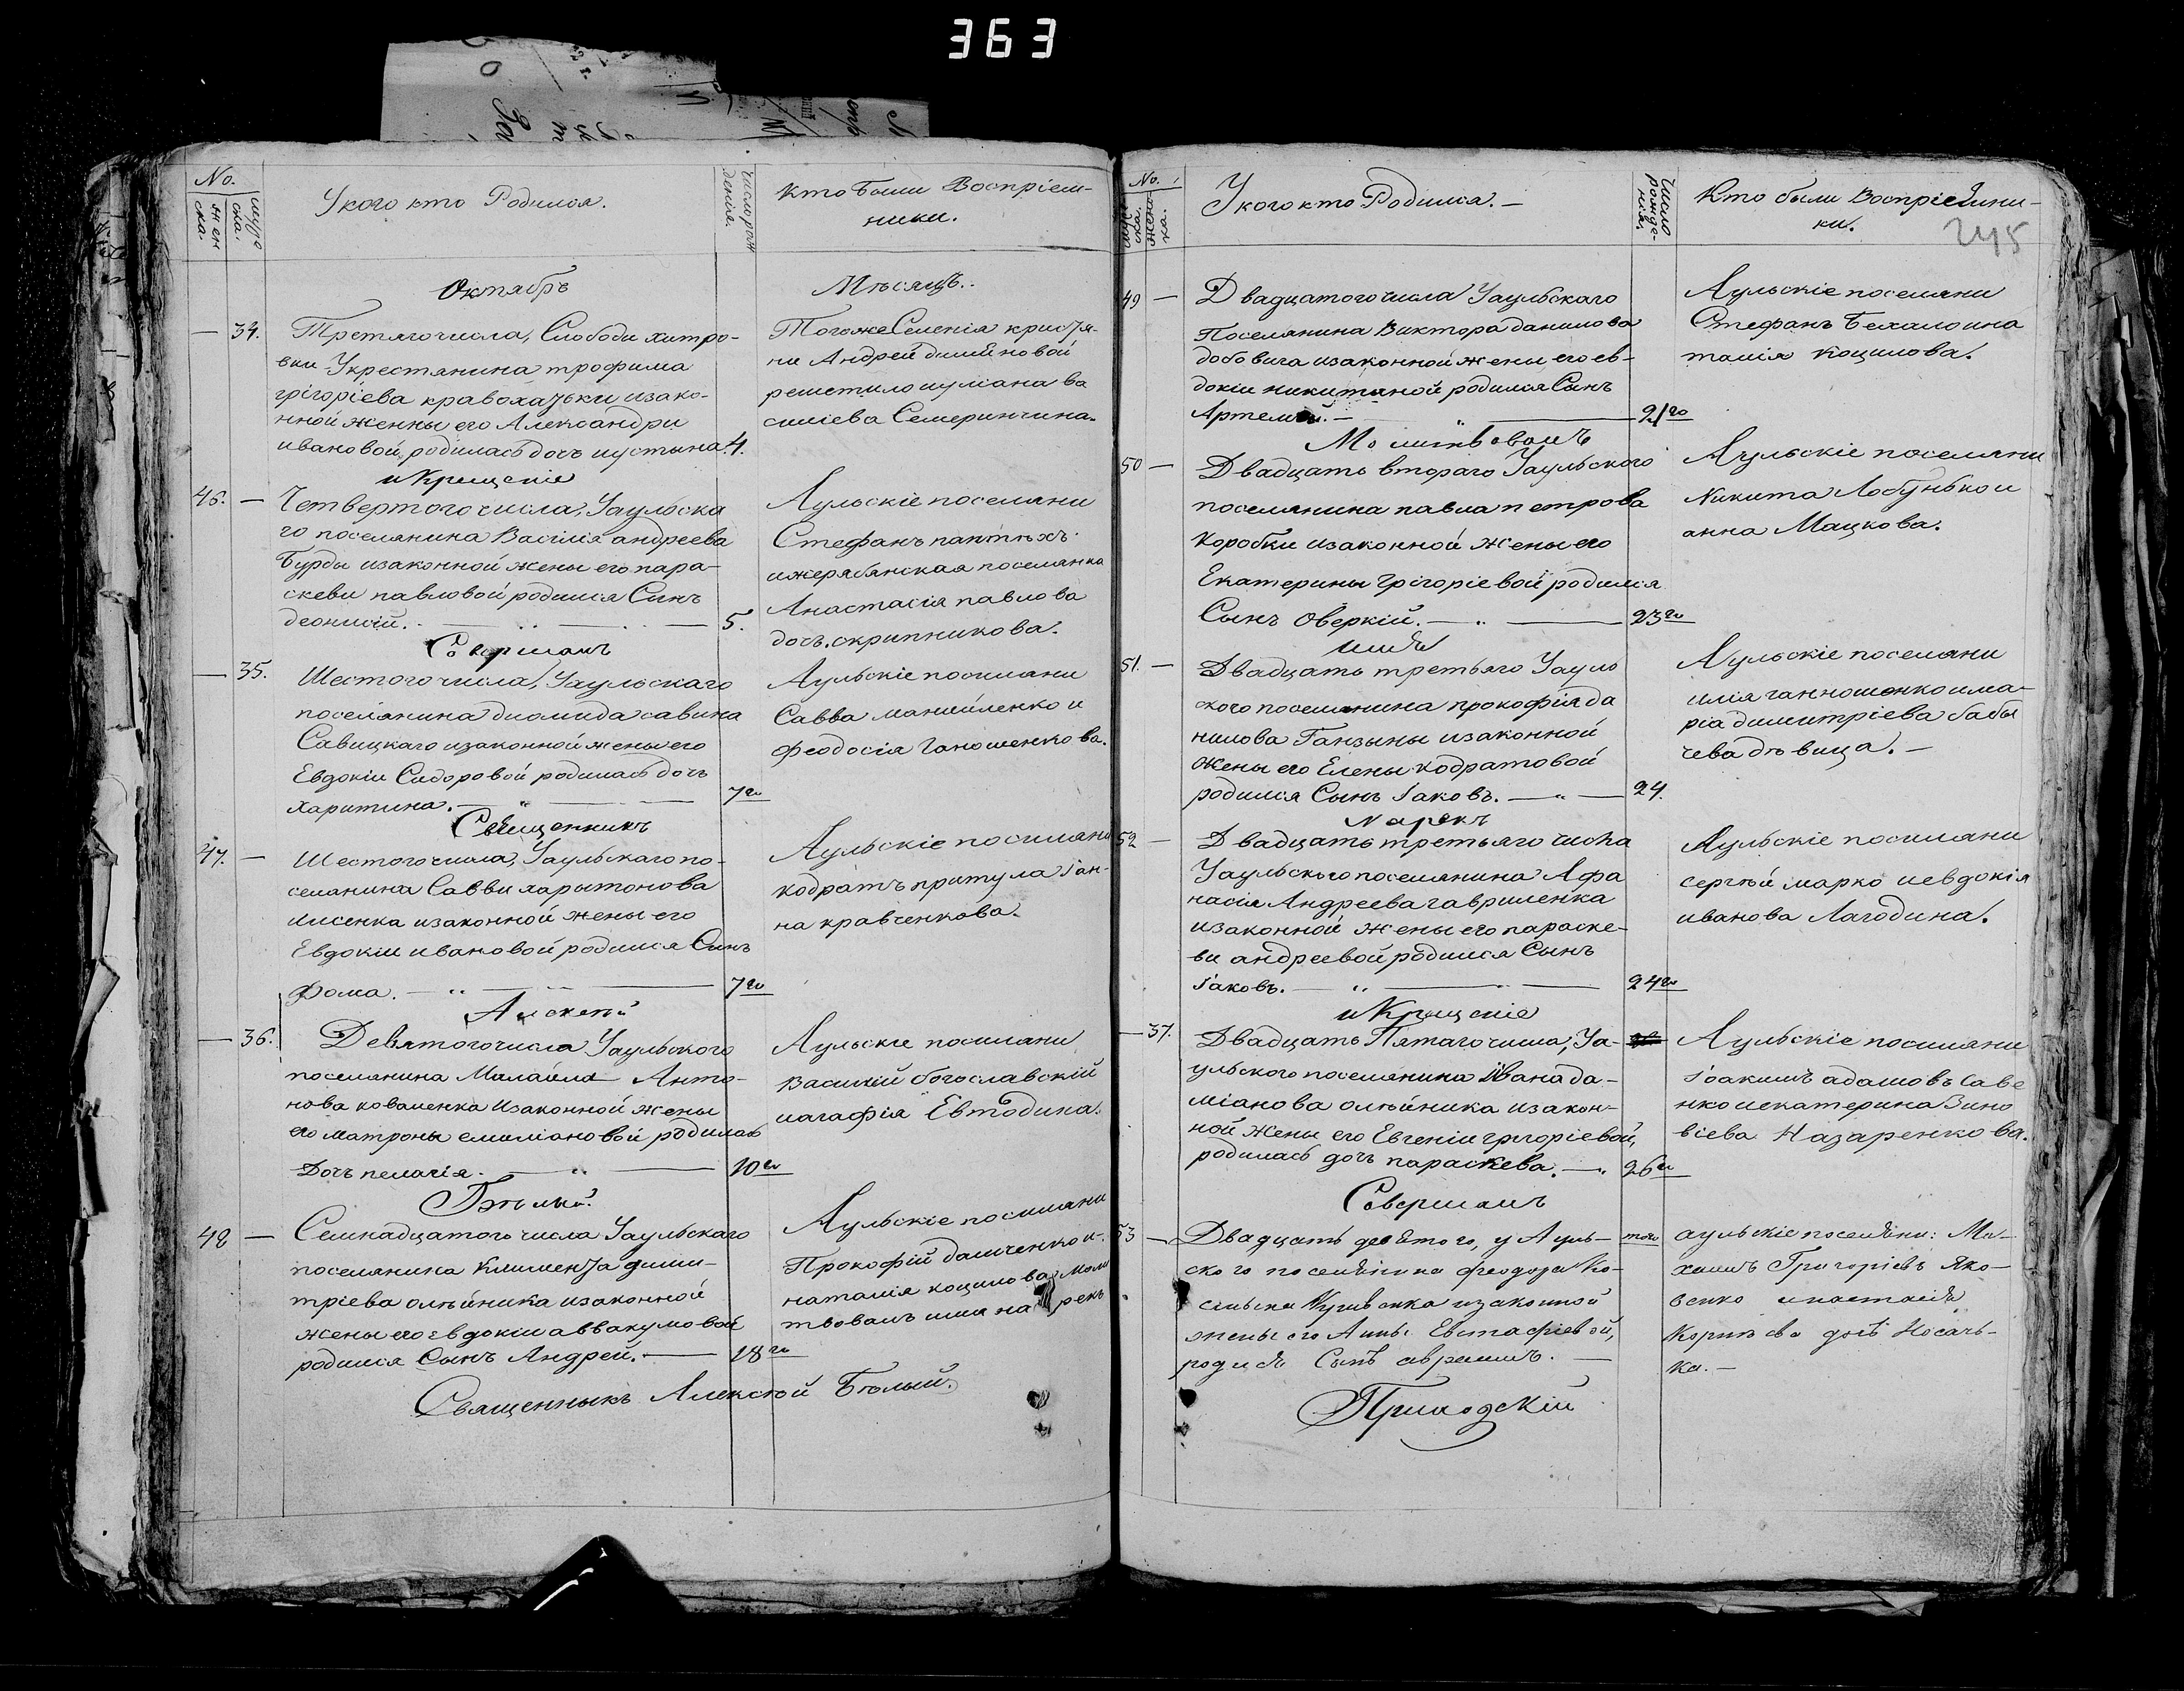 363
No.
мужеска.
женска.
У кого кто Родился.
число рождения
Кто были Восприемники.
Октябрь
Мѣсяцъ.
— 34. Третяго числа, Слободи хитро-
вки Укрестянина трофима
григоріева кравохатьки изако-
нной женны его Александри
ивановой родилась дочь иустына. 4.
Тогоже Селенія кристя-
ни Андрей
решетило иуліана ва
силіева Семеринчина.
и Крещеніе
46. — Четвертого числа, Уаульска
го поселянина Василія андреева
Бурды изаконной жены его пара-
скеви павловой родился Сынъ
деонисій. 5.
Аульскіе поселяни
Стефанъ
ижерабянская поселянка
Анастасія павлова
дочь скрипникова.
Совершалъ
— 35. Шестого числа, Уаульскаго
поселянина диомида савина
Савицкаго изаконной жены его
Евдокіи Сидоровой родилась дочь
Харитина. 7го
Аульскіе поселяни
Савва манойленко и
Феодосія Ганошенкова.
Священникъ
47. — Шестого числа, Уаульскаго по-
селянина Савви харытонова
лисенка изаконной жены его
Евдокіи ивановой родился Сынъ
Фома. 7го
Аульскіе поселяни
кодратъ притула іан-
на кравченкова.
Алексей
— 36. Девятого числа Уаульского
поселянина Михаила Анто-
нова коваленка Изаконной жены
его матроны емиліановой родилась
Дочь пелагія. 10го
Аульскіе поселяни
Василій богославскій
иагафія Евтодина.
Бѣлый.
48 — Семнадцатого числа Уаульскаго
поселянина Климента дими-
тріева олѣйника изаконной
жены его евдокіи аввакумовой
родился Сынъ Андрей. 18го
Аульскіе поселяни
Прокофій данченко и
наталія коцилова Моли
твовалъ имя на рекъ
Священныкъ Алексѣй Бѣлый.
No.
мужеска.
женска.
У кого кто Родился.
Число рожденія.
Кто были Восприемни-
ки.
245
49 — Двадцатого числа Уаульскаго
Поселянина Виктора данилова
добовича изаконной жены его ев-
докіи никитиной родился Сынъ
Артемій. 21го
Аульскіе поселяни
Стефанъ Бехало ина
талія коцилова.
Молитвовалъ
50 — Двадцать втораго Уаульского
поселянина павла петрова
Коробки изаконной жены его
Екатерины григоріевой родился
Сынъ Оверкій. 23го
Аульскіе поселяни
Никита Лобунько и
анна Мацкова.
имя
51. — Двадцать третьяго Уауль
ского поселянина прокофія да
нилова Ганзыны изаконной
жены его Елены кодратовой
родился Сынъ Іаковъ. 24.
Аульскіе поселяни
илія ганношенко има-
рія димитріева бабы
чева дѣвица. —
Нарекъ
52 — Двадцать третьяго числа
Уаульского поселянина Афа
насія Андреева гавриленка
изаконной жены его параске-
ви андреевой родился Сынъ
Іаковъ. 24го
Аульскіе поселяни
сергѣй марко иевдокія
иванова Лагодина.
и Крещеніе
— 37. Двадцать Пятаго числа, Уа-
ульского поселянина Ивана да-
міанова олѣйника изакон-
ной жены его Евгеніи григоріевой,
родилась дочь параскева. 26го
Аульскіе поселяни
Іоакимъ адамовъ Саве
нко иекатерина Зино
віева Назаренкова.
Совершалъ
53 — Двадцать девятого, у Ауль-
ского поселянина феодора
изаконной
жены его Анны Евстафіевой,
родися Сынъ аврамъ. —
того
аульскіе поселяни: Ми-
хаилъ Григоріевъ Яко-
венко инастасія
дочь Носачь-
ка. —
Приходскій